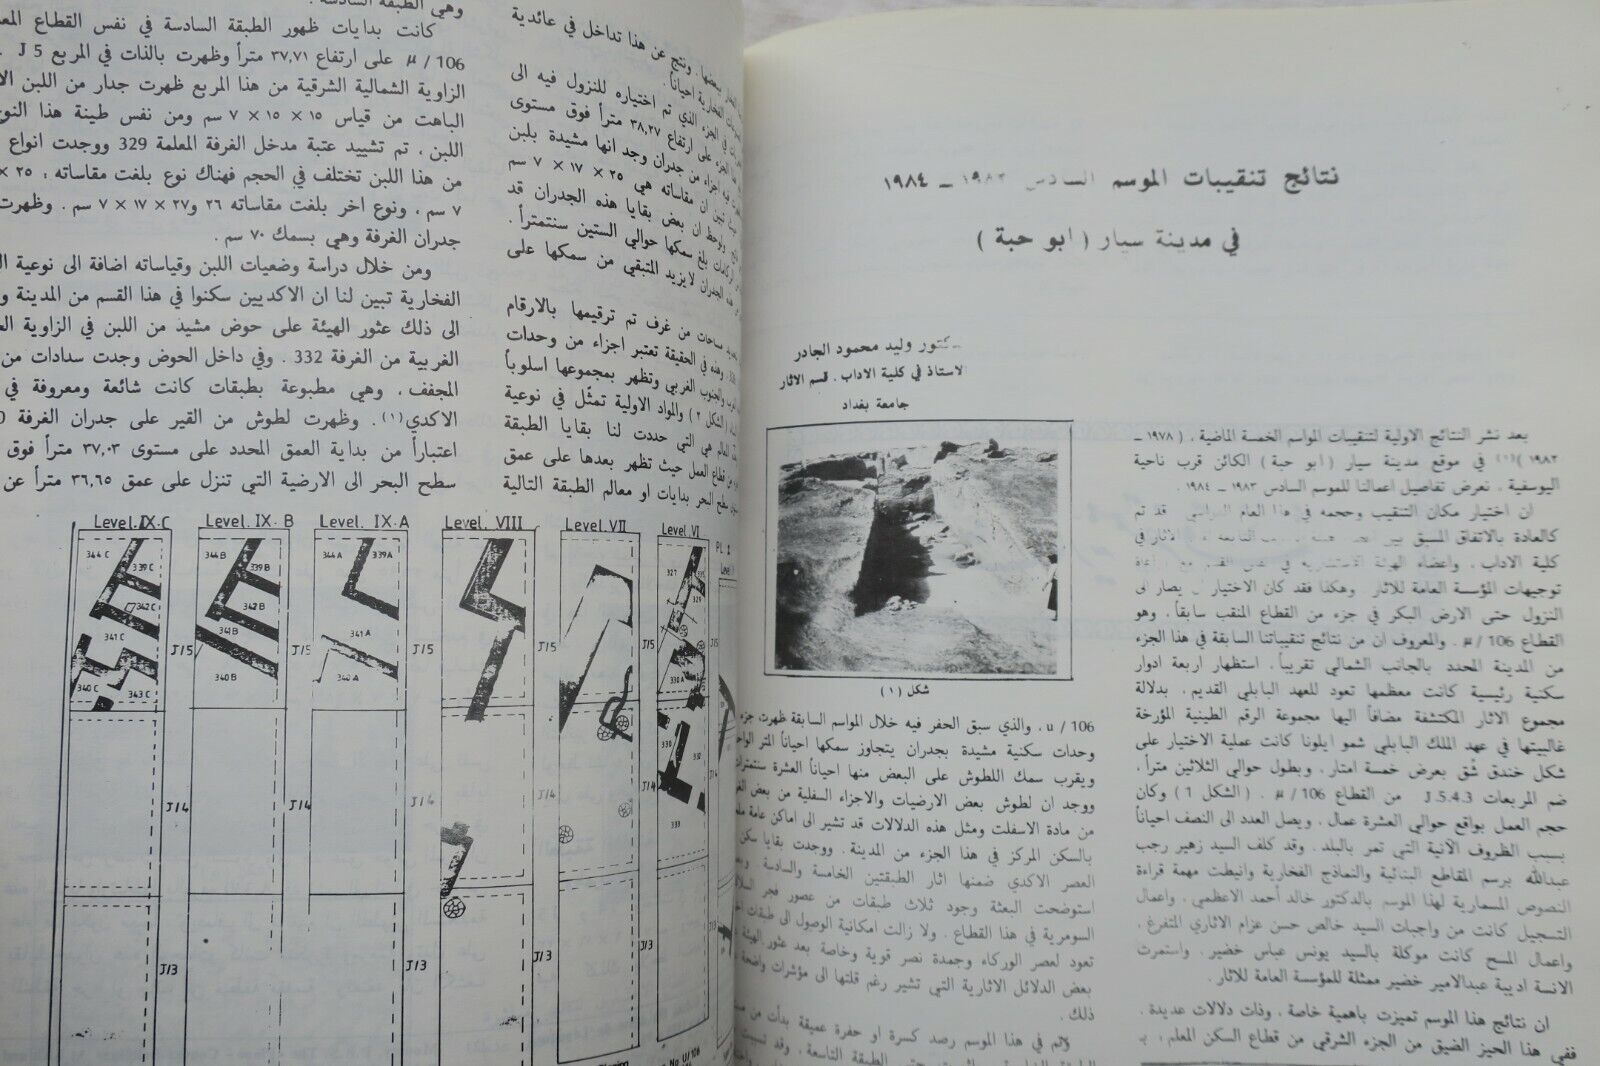 نتائج تنقيبات الموسم السادس ١٩٨٣ ـ ١٩٨٤
في مدينة سيار ( ابو حبة )
وليد محمود الجادر
الاستاذ في كلية الاداب . قسم الاثار
جامعة بغداد
بعد نشر النتائج الاولية لتنقيبات المواسم الخمسة الماضية ، ( ١٩٧٨ ـ
١٩٨٣ )(١) في موقع مدينة سيار ( ابو حبة ) الكائن قرب ناحية
اليوسفية ، نعرض تفاصيل اعمالنا للموسم السادس ١٩٨٣ ـ ١٩٨٤ .
ان اختيار مكان التنقيب وحجمه في هذا العام الدراسي قد تم
كالعادة بالاتفاق المسبق بين التابعة الاثار في
كلية الاداب ، واعضاء الهيئة الاستشارية في القسم مع
توجيهات المؤسسة العامة للاثار وهكذا فقد كان الاختيار يصار الى
النزول حتى الارض البكر في جزء من القطاع المنقب سابقاً ، وهو
القطاع 106/µ . والمعروف ان من نتائج تنقيباتنا السابقة في هذا الجزء
من المدينة المحدد بالجانب الشمالي تقريباً ، استظهار اربعة ادوار
سكنية رئيسية كانت معظمها تعود للعهد البابلي القديم ، بدلالة
مجموع الاثار المكتشفة مضافاً اليها مجموعة الرقم الطينية المؤرخة
غالبيتها في عهد الملك البابلي شمو ايلونا كانت عملية الاختيار على
شكل خندق شُق بعرض خمسة امتار ، وبطول حوالي الثلاثين متراً ،
ضم المربعات J.5.4.3 من القطاع 106/µ . ( الشكل 1 ) وكان
حجم العمل بواقع حوالي العشرة عمال ، ويصل العدد الى النصف احياناً
بسبب الظروف الآنية التي تمر بالبلد . وقد كلف السيد زهير رجب
عبدالله برسم المقاطع البنائية والنماذج الفخارية وانيطت مهمة قراءة
النصوص المسمارية لهذا الموسم بالدكتور خالد أحمد الاعظمي ، واعمال
التسجيل كانت من واجبات السيد خالص حسن عزام الاثاري المتفرغ ،
واعمال المسح كانت موكلة بالسيد يونس عباس خضير . واستمرت
الانسة اديبة عبدالامير خضير ممثلة للمؤسسة العامة للاثار .
ان نتائج هذا الموسم تميزت باهمية خاصة ، وذات دلالات عديدة .
ففي هذا الحيز الضيق من الجزء الشرقي من قطاع السكن المعلم ،
شكل (١)
106 / u ، والذي سبق الحفر فيه خلال المواسم السابقة ظهرت جزء
وحدات سكنية مشيدة بجدران يتجاوز سمكها احياناً المتر الواحد
ويقرب سمك اللطوش على البعض منها احياناً العشرة سنتمترات
ووجد ان لطوش بعض الارضيات والاجزاء السفلية من بعض
من مادة الاسفلت ومثل هذه الدلالات قد تشير الى اماكن عامة
بالسكن المركز في هذا الجزء من المدينة . ووجدت بقايا سكن
العصر الاكدي ضمنها اثار الطبقتين الخامسة والسادسة
استوضحت البعثة وجود ثلاث طبقات من عصور فجر
السومرية في هذا القطاع . ولا زالت امكانية الوصول الى طبقات
تعود لعصر الوركاء وجمدة نصر قوية وخاصة بعد عثور الهيئة
بعض الدلائل الاثارية التي تشير رغم قلتها الى مؤشرات واضحة
ذلك .
في هذا الموسم رصد كسرة او حفرة عميقة بدأت من
الطبقة التاسعة ، وقد
ونتج عن هذا تداخل في عائدية
الفخارية احياناً .
في الجزء الذي تم اختياره للنزول فيه الى
على ارتفاع ٣٨,٢٧ متراً فوق مستوى
اجزاء من جدران وجد انها مشيدة بلبن
تبين ان مقاساته هي ٢٥ × ١٧ × ٧ سم
ولوحظ ان بعض بقايا هذه الجدران قد
بلغ سمكها حوالي الستين سنتمتراً .
هذه الجدران لايزيد المتبقي من سمكها على
مساحات من غرف تم ترقيمها بالارقام
وهذه في الحقيقة تعتبر اجزاء من وحدات
والجنوب الغربي وتظهر بمجموعها اسلوباً
( الشكل ٢ ) والمواد الاولية تمثّل في نوعية
هي التي حددت لنا بقايا الطبقة
من قطاع العمل حيث تظهر بعدها على عمق
سطح البحر بدايات او معالم الطبقة التالية
وهي الطبقة السادسة .
كانت بدايات ظهور الطبقة السادسة في نفس القطاع
106 / µ على ارتفاع ٣٧,٧١ متراً وظهرت بالذات في المربع J 5
الزاوية الشمالية الشرقية من هذا المربع ظهرت جدار من اللبن
الباهت من قياس ١٥ × ١٥ × ٧ سم ومن نفس طينة هذا النوع
اللبن ، تم تشييد عتبة مدخل الغرفة المعلمة 329 ووجدت انواع
من هذا اللبن تختلف في الحجم فهناك نوع بلغت مقاساته : ٢٥ ×
٧ سم ، ونوع اخر بلغت مقاساته ٢٦ و٢٧ × ١٧ × ٧ سم . وظهرت
جدران الغرفة وهي بسمك ٧٠ سم .
ومن خلال دراسة وضعيات اللبن وقياساته اضافة الى نوعية
الفخارية تبين لنا ان الاكديين سكنوا في هذا القسم من المدينة
الى ذلك عثور الهيئة على حوض مشيد من اللبن في الزاوية
الغربية من الغرفة 332 . وفي داخل الحوض وجدت سدادات من
المجفف ، وهي مطبوعة بطبقات كانت شائعة ومعروفة في
الاكدي(١) . وظهرت لطوش من القير على جدران الغرفة
اعتباراً من بداية العمق المحدد على مستوى ٣٧,٠٣ متراً فوق
سطح البحر الى الارضية التي تنزل على عمق ٣٦,٦٥ متراً عن
Level.IX.C Level.IX.B Level.IX.A Level.VIII Level.VII Level.VI
344 C 339 C 342 C 341 C 340 C 343 C
344 B 339 B 342 B 341 B 340 B
344 A 339 A 341 A 340 A
327 329 330 A 330 332 333
J/5 J/5 J/5 J/5 J/5
J/4 J/4 J/4 J/4 J/4
J/3 J/3 J/3 J/3
No. U/106